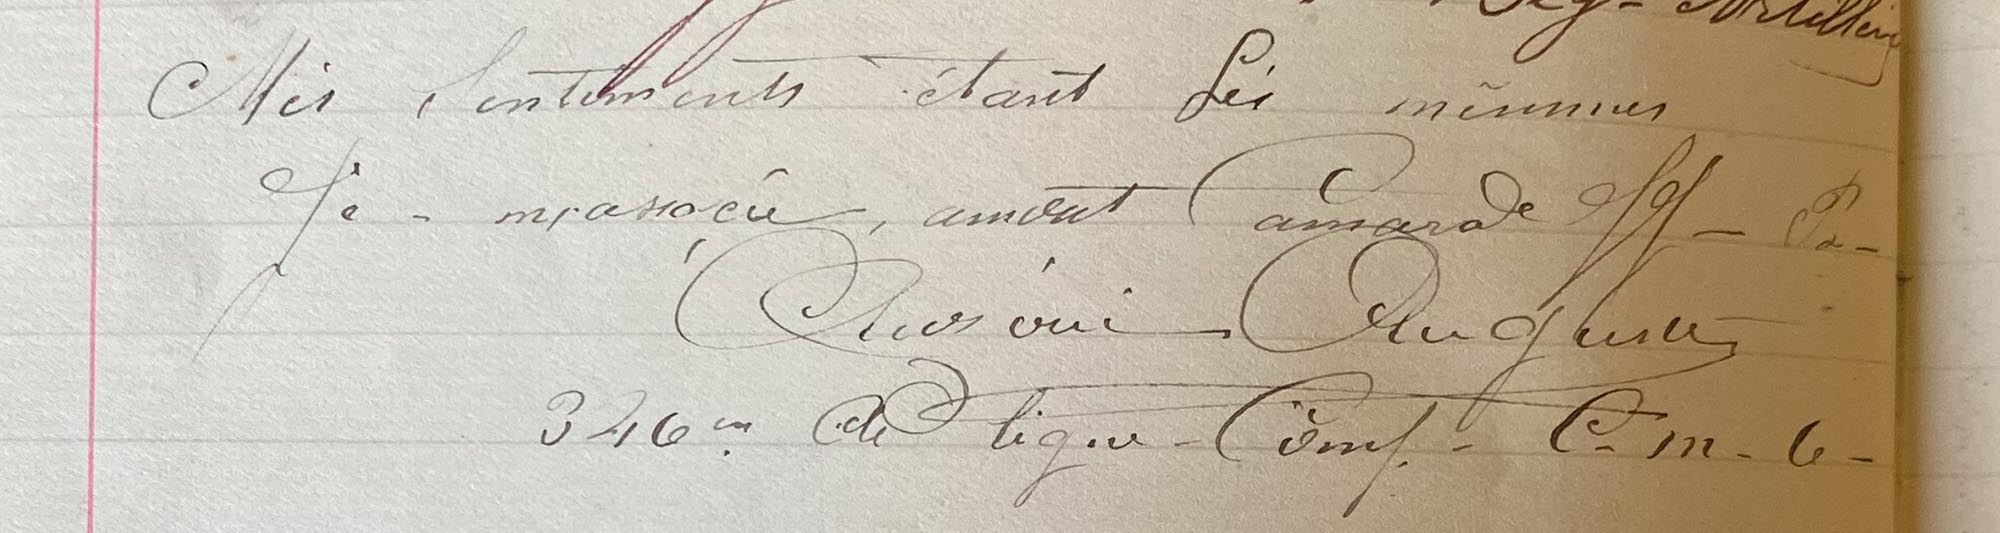 Reg - Artillerie
Mes sentiments étant les mêmmes
Je - m,associe, amont Camarade H - P -
Auguste
346em de ligne - Comp. - C - m - 6 -